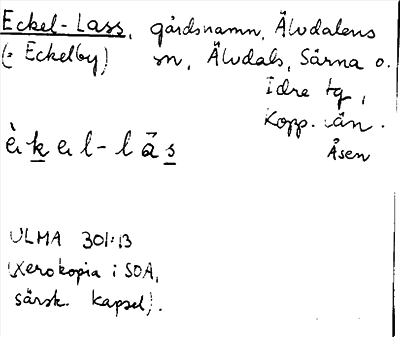 Eckel-Lass, gårdsnamn, Älvdalens
(= Eckelby) sn, Älvdals, Särna o.
Idre tg,
Kopp. län.
Åsen
èkel-lās
ULMA 301:13
(Xerokopia i SOA,
särsk. kapsel).